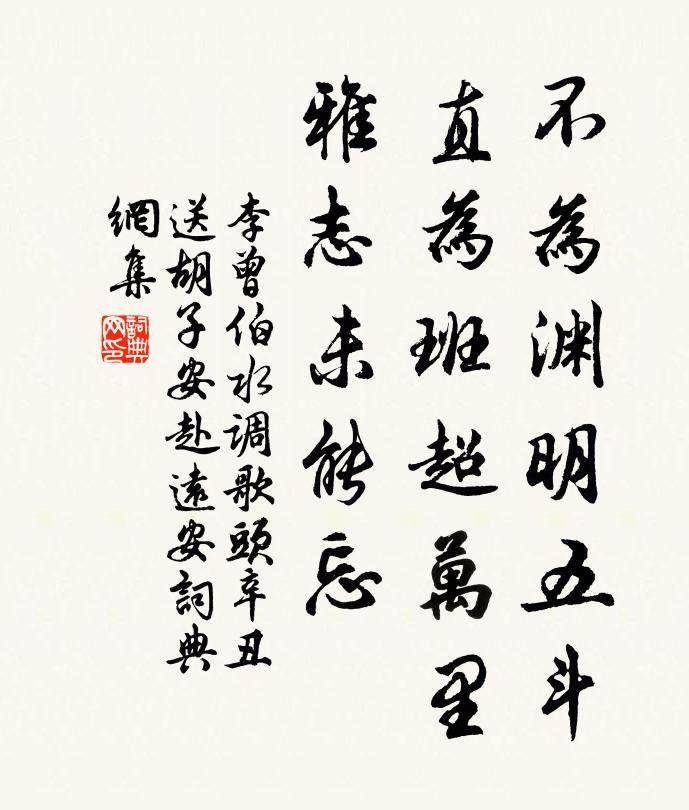 不為渊明五斗
直為班超萬里
雅志未能忘
李曾伯水调歌頭辛丑
送胡子安赴遠安詞典
網集
詞典
网印